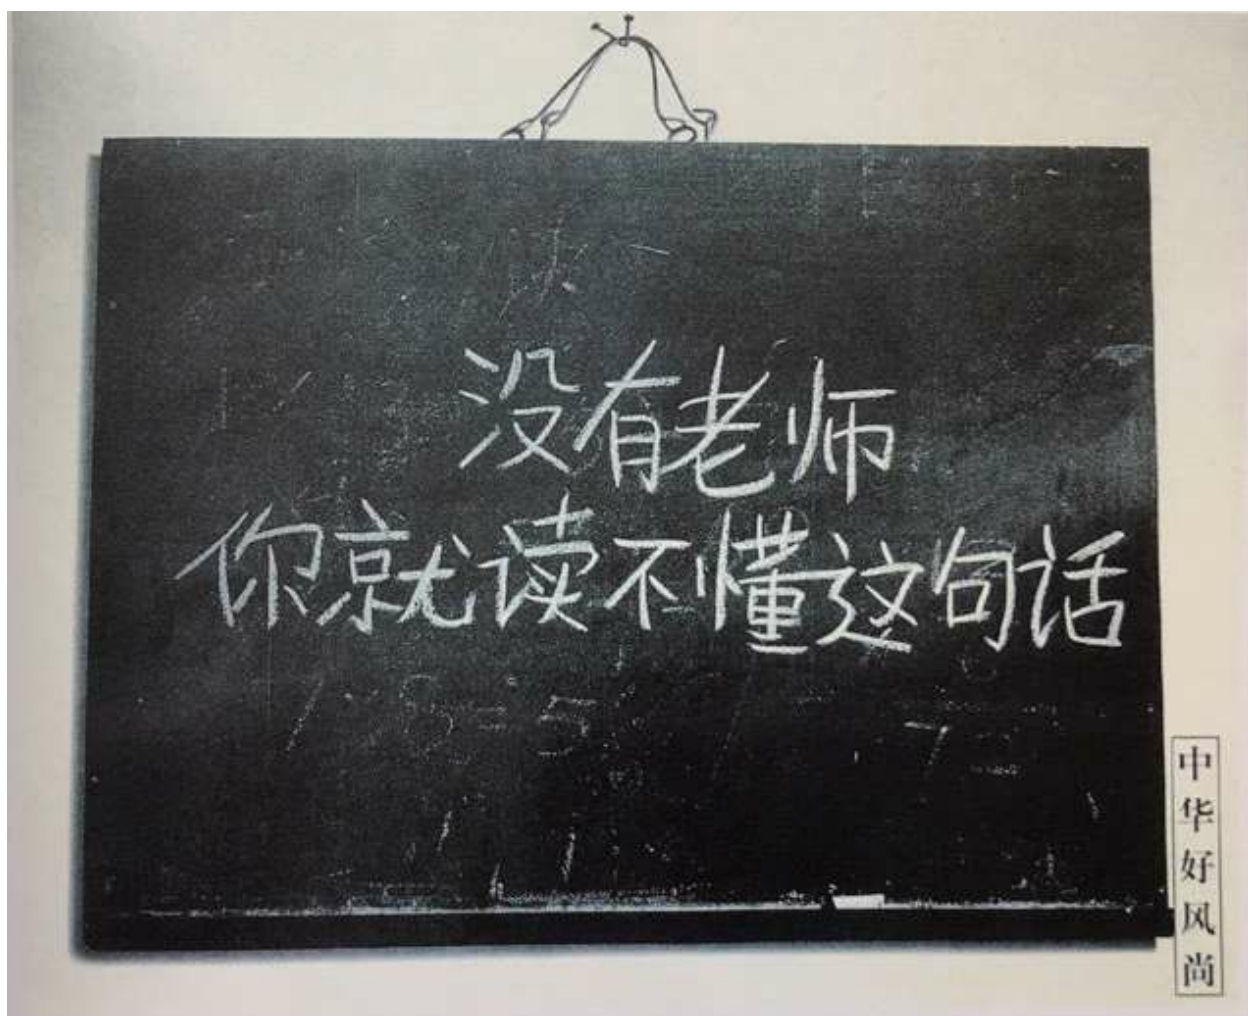 没有老师
你就读不懂这句话
中华好风尚